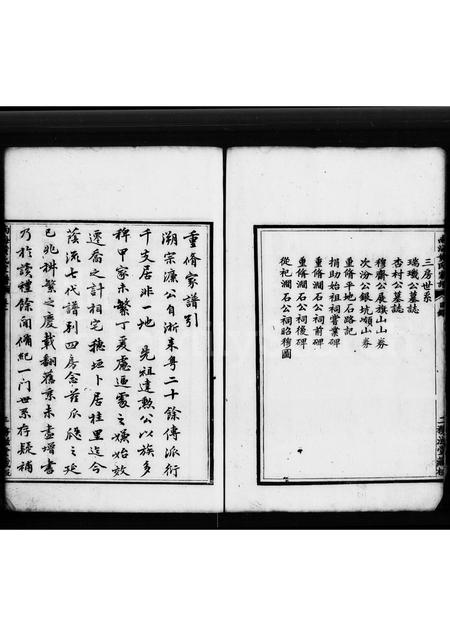 三房世系
瑞璣公墓誌
杏村公墓誌
穆齋公展旗山山券
次汾公銀坑嶺山券
重脩平地石路記
捐助始祖祠嘗業碑
重脩澗石公祠前碑
重脩澗石公祠後碑
從祀澗石公祠昭穆圖
重脩家譜引
溯宗濂公自浙來粤二十餘傳派衍
千支居非一地 先祖建勲公以族多
稗甲家未繁丁爰慮逼處之嫌始效
遷喬之計相宅穗垣卜居桂里迄今
蔭流七代譜列四房念茲瓜瓞之延
已兆椒繁之慶載翻舊乘未盡增書
乃於讀禮餘閒脩紀一門世系存疑補